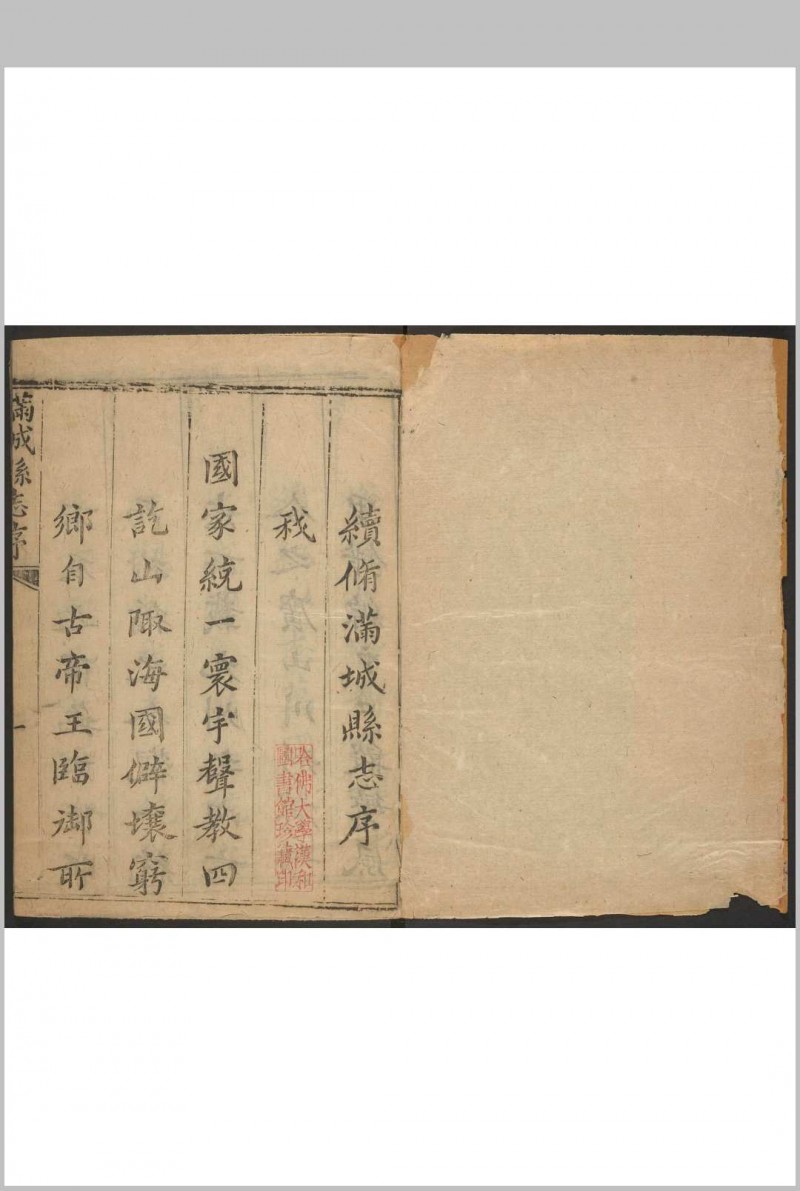 續脩滿城縣志序
我
國家統一寰宇聲教四
訖山陬海國僻壤窮
鄉自古帝王臨御所
滿城縣志序
一
哈佛大學漢和
圖書館珍藏印